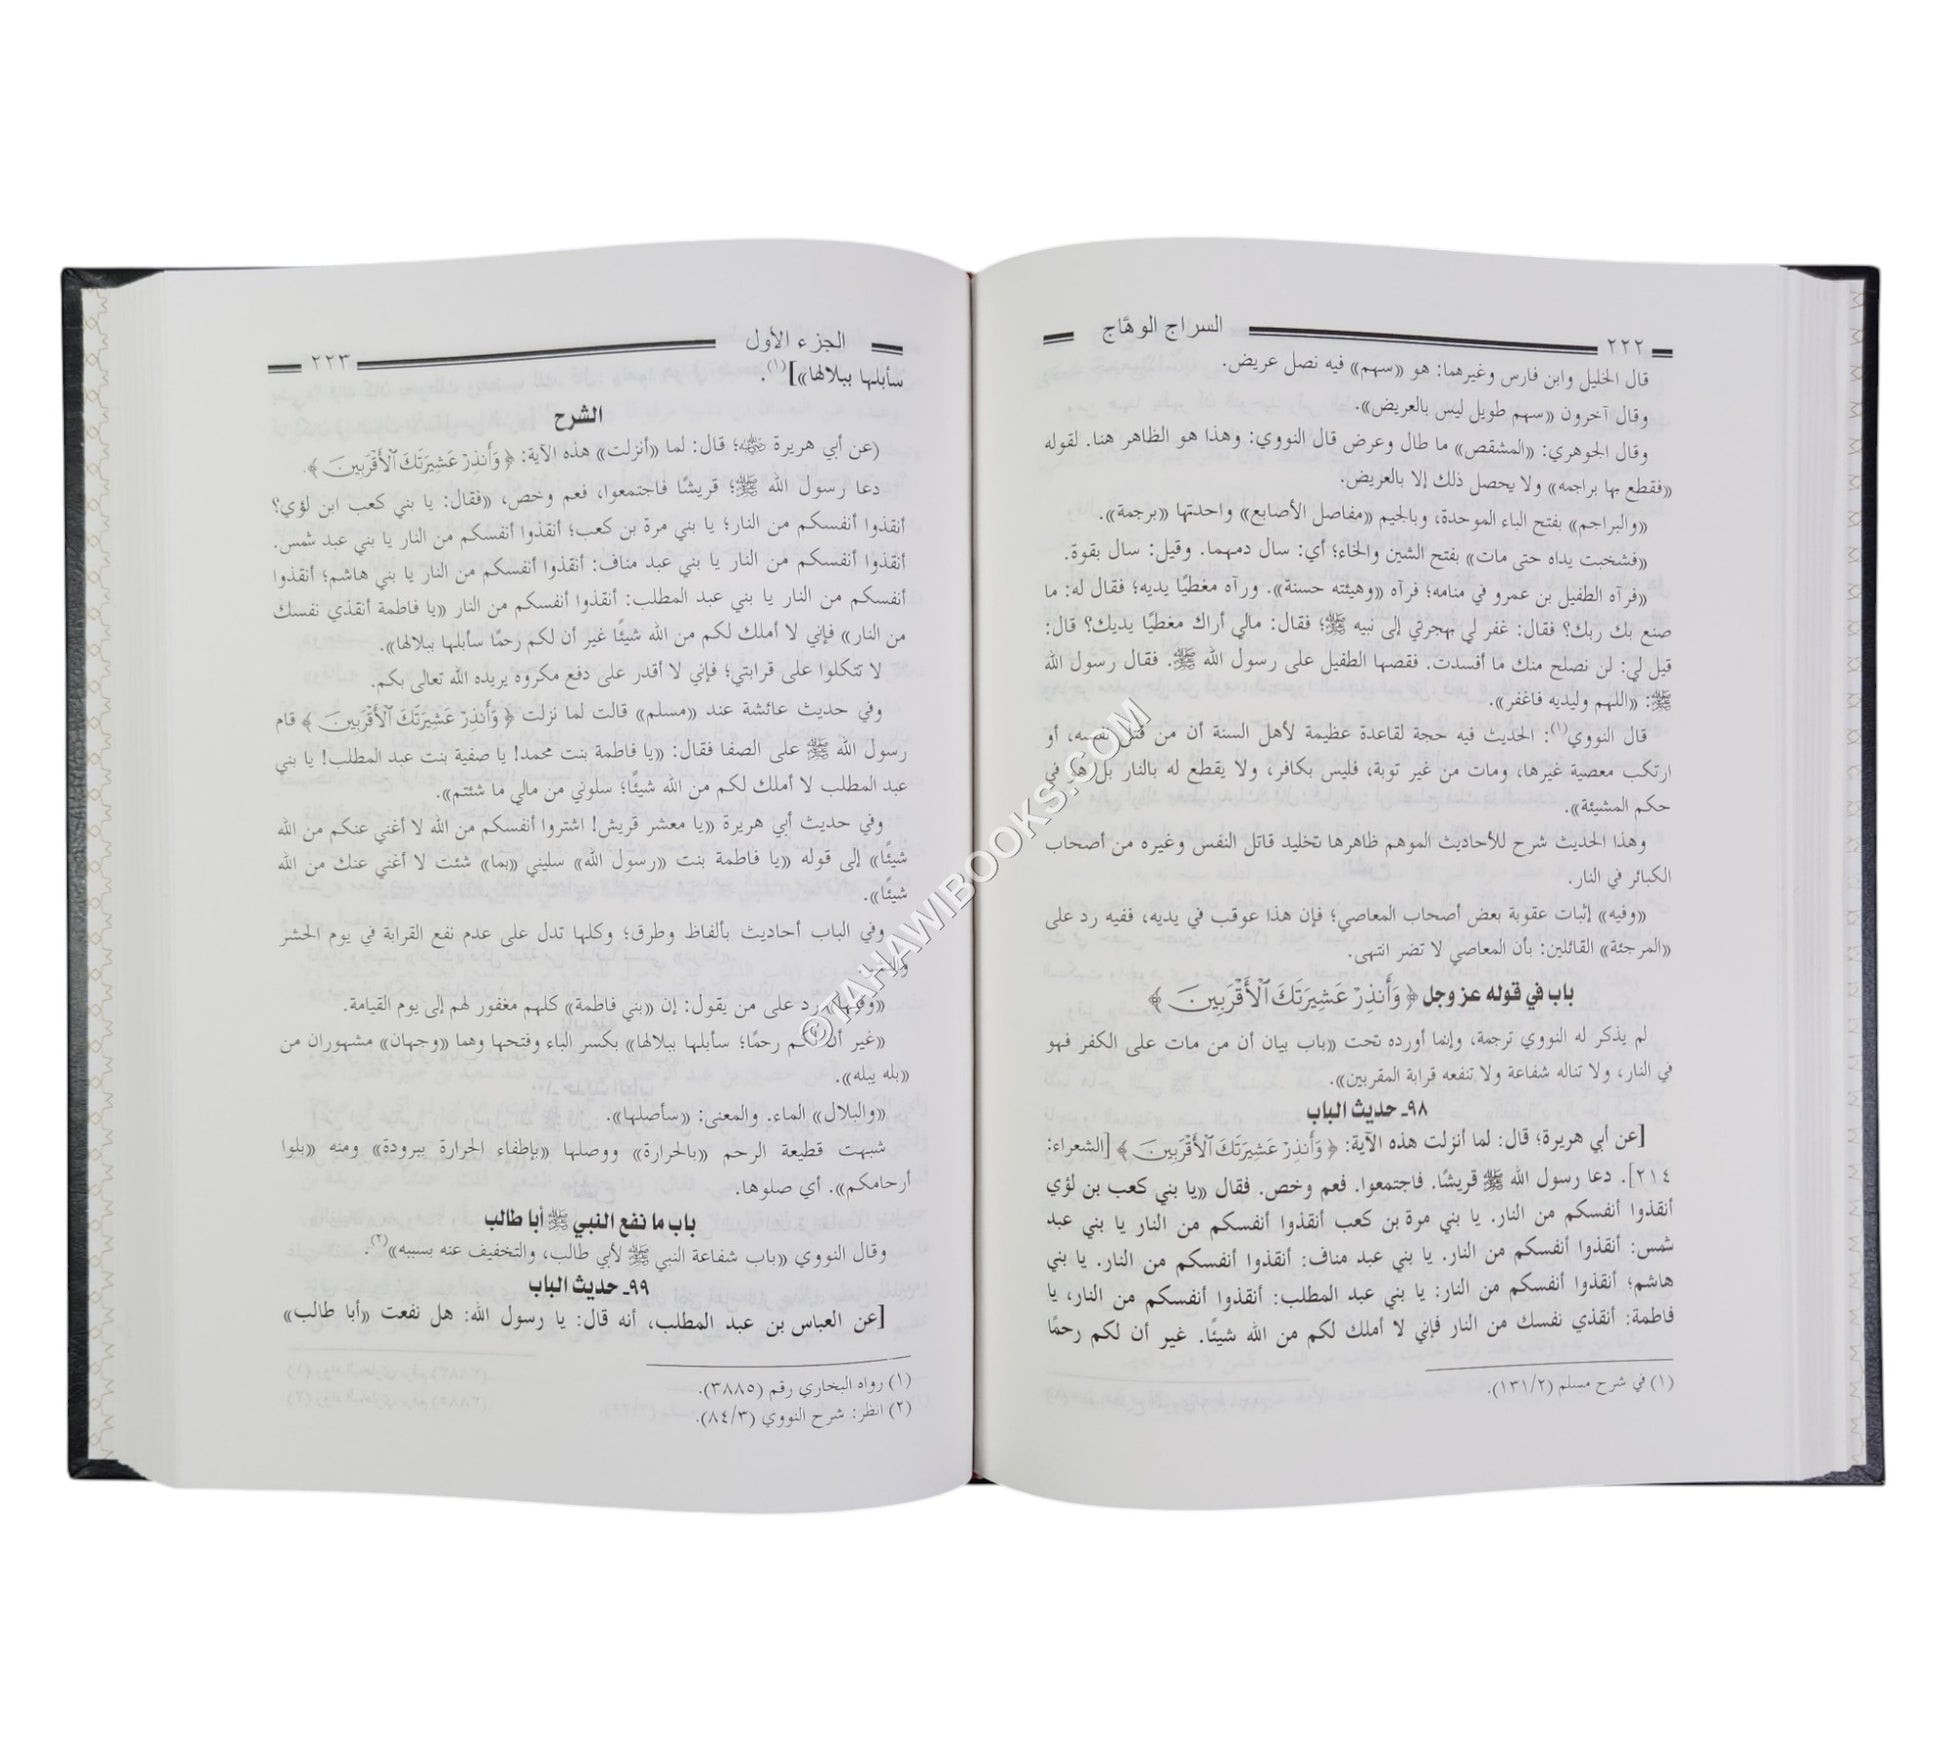 ٢٢٢
السراج الوهَّاج
قال الخليل وابن فارس وغيرهما: هو «سهم» فيه نصل عريض.
وقال آخرون «سهم طويل ليس بالعريض».
وقال الجوهري: «المشقص» ما طال وعرض قال النووي: وهذا هو الظاهر هنا. لقوله
«فقطع بها براجمه» ولا يحصل ذلك إلا بالعريض.
«والبراجم» بفتح الباء الموحدة، وبالجيم «مفاصل الأصابع» واحدتها «برجمة».
«فشخبت يداه حتى مات» بفتح الشين والخاء؛ أي: سال دمهما. وقيل: سال بقوة.
«فرآه الطفيل بن عمرو في منامه؛ فرآه «وهيئته حسنة». ورآه مغطيًا يديه؛ فقال له: ما
صنع بك ربك؟ فقال: غفر لي بهجرتي إلى نبيه ﷺ؛ فقال: مالي أراك مغطيًا يديك؟ قال:
قيل لي: لن نصلح منك ما أفسدت. فقصها الطفيل على رسول الله ﷺ. فقال رسول الله
ﷺ: «اللهم وليديه فاغفر».
قال النووي(١): الحديث فيه حجة لقاعدة عظيمة لأهل السنة أن من قتل نفسه، أو
ارتكب معصية غيرها، ومات من غير توبة، فليس بكافر، ولا يقطع له بالنار بل هو في
حكم المشيئة».
وهذا الحديث شرح للأحاديث الموهم ظاهرها تخليد قاتل النفس وغيره من أصحاب
الكبائر في النار.
«وفيه» إثبات عقوبة بعض أصحاب المعاصي؛ فإن هذا عوقب في يديه، ففيه رد على
«المرجئة» القائلين: بأن المعاصي لا تضر انتهى.
باب في قوله عز وجل ﴿ وَأَنذِرْ عَشِيرَتَكَ ٱلْأَقْرَبِينَ ﴾
لم يذكر له النووي ترجمة، وإنما أورده تحت «باب بيان أن من مات على الكفر فهو
في النار، ولا تناله شفاعة ولا تنفعه قرابة المقربين».
٩٨ـ حديث الباب
[عن أبي هريرة؛ قال: لما أنزلت هذه الآية: ﴿ وَأَنذِرْ عَشِيرَتَكَ ٱلْأَقْرَبِينَ ﴾ [الشعراء:
٢١٤]. دعا رسول الله ﷺ قريشًا. فاجتمعوا. فعم وخص. فقال «يا بني كعب بن لؤي
أنقذوا أنفسكم من النار. يا بني مرة بن كعب أنقذوا أنفسكم من النار يا بني عبد
شمس: أنقذوا أنفسكم من النار. يا بني عبد مناف: أنقذوا أنفسكم من النار. يا بني
هاشم؛ أنقذوا أنفسكم من النار: يا بني عبد المطلب: أنقذوا أنفسكم من النار، يا
فاطمة: أنقذي نفسك من النار فإني لا أملك لكم من الله شيئًا. غير أن لكم رحمًا
(١) في شرح مسلم (١٣١/٢).
الجزء الأول
٢٢٣
سأبلها ببلالها»](١).
الشرح
(عن أبي هريرة ﵁؛ قال: لما «أنزلت» هذه الآية: ﴿ وَأَنذِرْ عَشِيرَتَكَ ٱلْأَقْرَبِينَ ﴾.
دعا رسول الله ﷺ؛ قريشًا فاجتمعوا، فعم وخص، «فقال: يا بني كعب ابن لؤي؟
أنقذوا أنفسكم من النار؛ يا بني مرة بن كعب؛ أنقذوا أنفسكم من النار يا بني عبد شمس.
أنقذوا أنفسكم من النار يا بني عبد مناف: أنقذوا أنفسكم من النار يا بني هاشم؛ أنقذوا
أنفسكم من النار يا بني عبد المطلب: أنقذوا أنفسكم من النار «يا فاطمة أنقذي نفسك
من النار» فإني لا أملك لكم من الله شيئًا غير أن لكم رحمًا سأبلها ببلالها».
لا تتكلوا على قرابتي؛ فإني لا أقدر على دفع مكروه يريده الله تعالى بكم.
وفي حديث عائشة عند «مسلم» قالت لما نزلت ﴿ وَأَنذِرْ عَشِيرَتَكَ ٱلْأَقْرَبِينَ ﴾ قام
رسول الله ﷺ على الصفا فقال: «يا فاطمة بنت محمد! يا صفية بنت عبد المطلب! يا بني
عبد المطلب لا أملك لكم من الله شيئًا؛ سلوني من مالي ما شئتم».
وفي حديث أبي هريرة «يا معشر قريش! اشتروا أنفسكم من الله لا أغني عنكم من الله
شيئًا» إلى قوله «يا فاطمة بنت «رسول الله» سليني «بما» شئت لا أغني عنك من الله
شيئًا».
وفي الباب أحاديث بألفاظ وطرق؛ وكلها تدل على عدم نفع القرابة في يوم الحشر
«وفيها» رد على من يقول: إن «بني فاطمة» كلهم مغفور لهم إلى يوم القيامة.
«غير أن لكم رحمًا؛ سأبلها ببلالها» بكسر الباء وفتحها وهما «وجهان» مشهوران من
«بله يبله».
«والبلال» الماء. والمعنى: «سأصلها».
شبهت قطيعة الرحم «بالحرارة» ووصلها «بإطفاء الحرارة ببرودة» ومنه «بلوا
أرحامكم». أي صلوها.
باب ما نفع النبي ﷺ أبا طالب
وقال النووي «باب شفاعة النبي ﷺ لأبي طالب، والتخفيف عنه بسببه»(٢).
٩٩ـ حديث الباب
[عن العباس بن عبد المطلب، أنه قال: يا رسول الله: هل نفعت «أبا طالب»
(١) رواه البخاري رقم (٣٨٨٥).
(٢) انظر: شرح النووي (٨٤/٣).
©TAHAWIBOOKS.COM